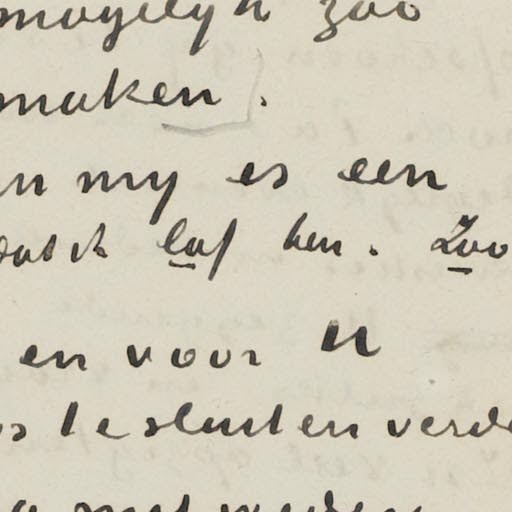 mogelyk zoo
maken.
en my es een
dat ik laf ben. Zoo
en voor U
te sluiten verde